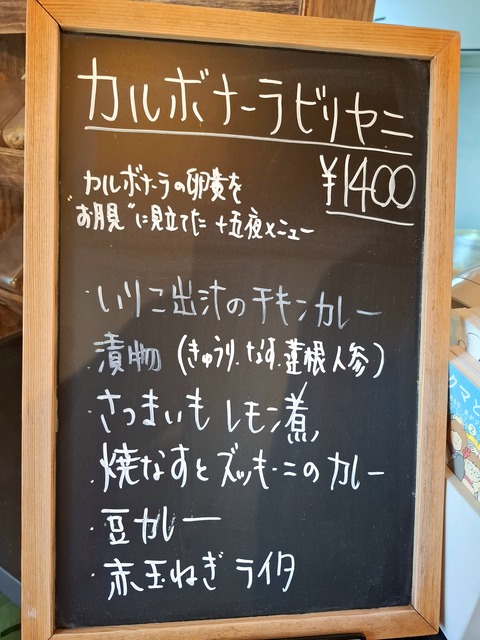 カルボナーラビリヤニ
¥1400
カルボナーラの卵黄を
"お月見"に見立てた 十五夜メニュー
・いりこ出汁のチキンカレー
・漬物 (きゅうり、なす、蓮根、人参)
・さつまいもレモン煮、
・焼なすとズッキーニのカレー
・豆カレー
・赤玉ねぎ ライタ
クマと